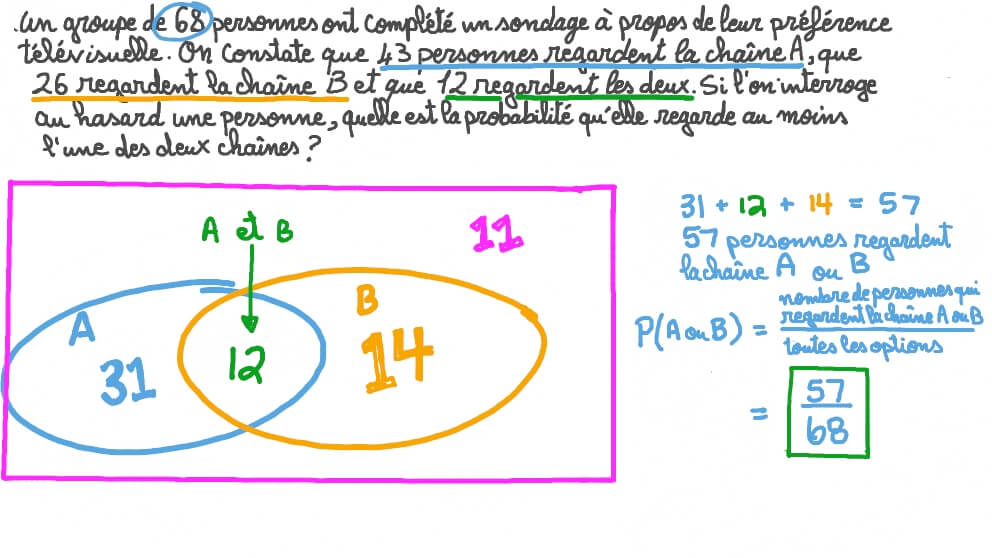 .Un groupe de 68 personnes ont complété un sondage à propos de leur préférence
télévisuelle. On constate que 43 personnes regardent la chaîne A, que
26 regardent la chaîne B et que 12 regardent les deux. Si l'on interroge
au hasard une personne, quelle est la probabilité qu'elle regarde au moins
l'une des deux chaînes?
A et B
11
A
B
31
12
14
31 + 12 + 14 = 57
57 personnes regardent
la chaîne A ou B
nombre de personnes qui
regardent la chaîne A ou B
P(A ou B) =
toutes les options
= 57
68